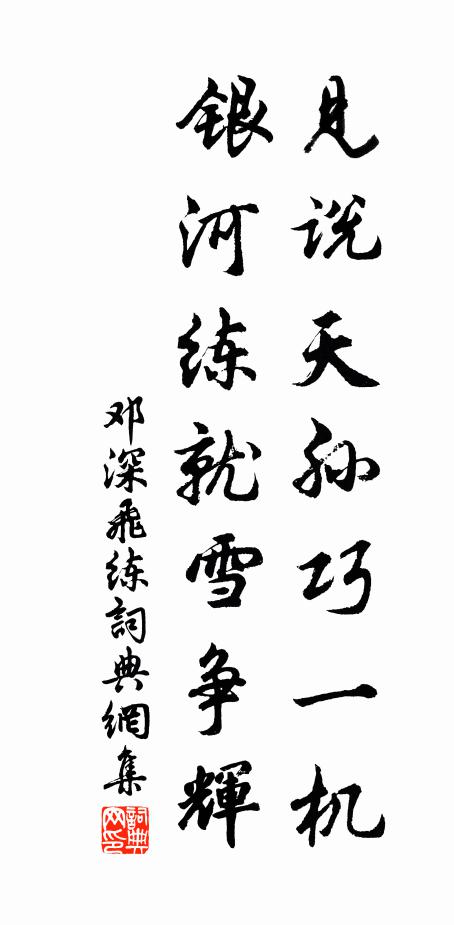 见说天孙巧一机
银河练就雪争辉
邓深飛练詞典網集
詞典网印